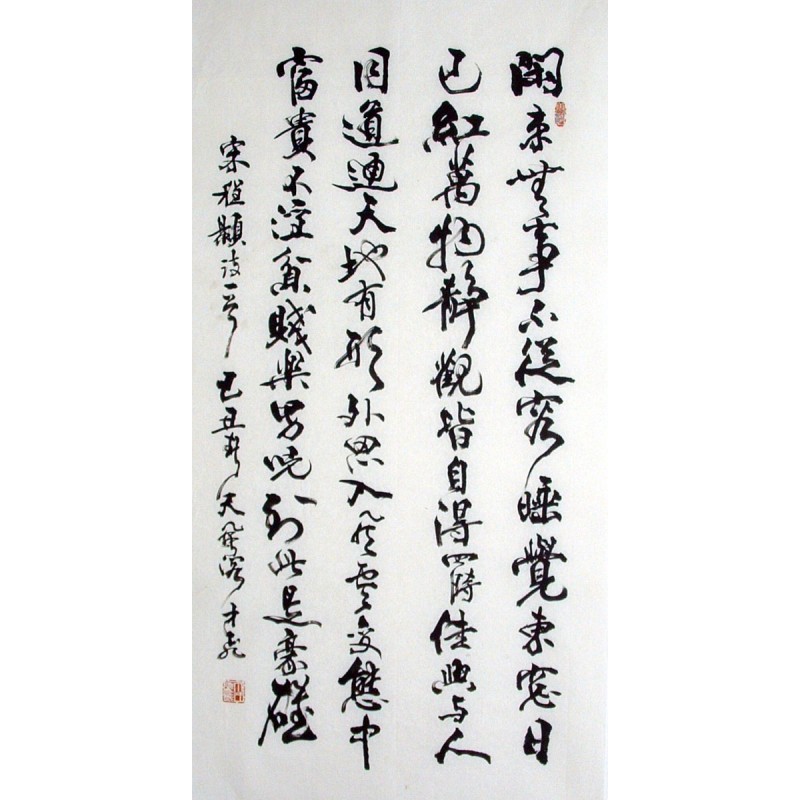 閑来無事不從容睡覺東窓日
已紅萬物靜觀皆自得四時佳興与人
同道通天地有形外思入風雲変態中
富貴不淫貧賤樂男兒到此是豪雄
宋程顥詩一首 己丑